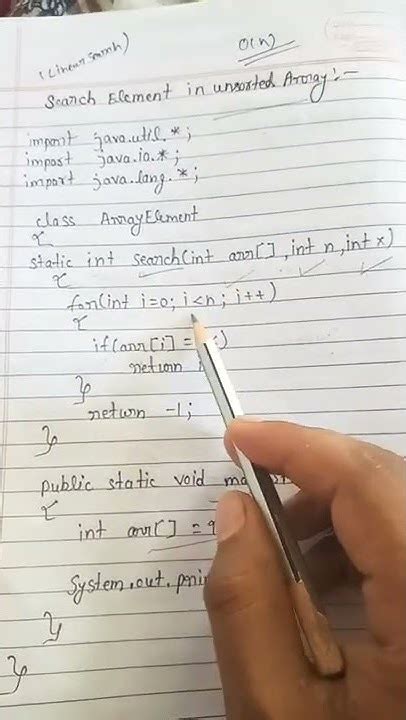 (Linear search)
O(n)
Search Element in unsorted Array:-
import java.util.*;
import java.io.*;
import java.lang.*;
class ArrayElement
{
static int search(int arr[], int n, int x)
{
for(int i=0; i<n; i++)
{
if(arr[i] =
return
}
return -1;
}
public static void
{
int arr[] =
System.out.
}
}